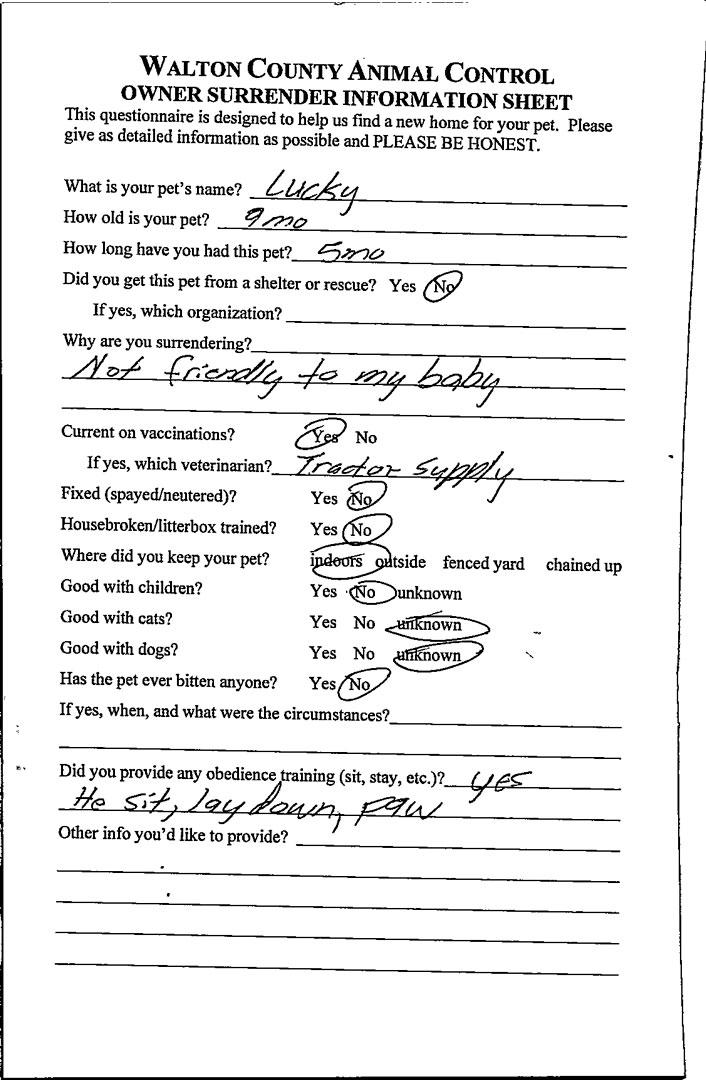 WALTON COUNTY ANIMAL CONTROL
OWNER SURRENDER INFORMATION SHEET
This questionnaire is designed to help us find a new home for your pet. Please
give as detailed information as possible and PLEASE BE HONEST.
What is your pet's name? Lucky
How old is your pet? 9 mo
How long have you had this pet? 5mo
Did you get this pet from a shelter or rescue? Yes No
If yes, which organization?
Why are you surrendering?
Not friendly to my baby
Current on vaccinations? Yes No
If yes, which veterinarian? Tractor Supply
Fixed (spayed/neutered)? Yes No
Housebroken/litterbox trained? Yes No
Where did you keep your pet? indoors outside fenced yard chained up
Good with children? Yes No unknown
Good with cats? Yes No unknown
Good with dogs? Yes No unknown
Has the pet ever bitten anyone? Yes No
If yes, when, and what were the circumstances?
Did you provide any obedience training (sit, stay, etc.)? yes
He sit, lay down, paw
Other info you'd like to provide?